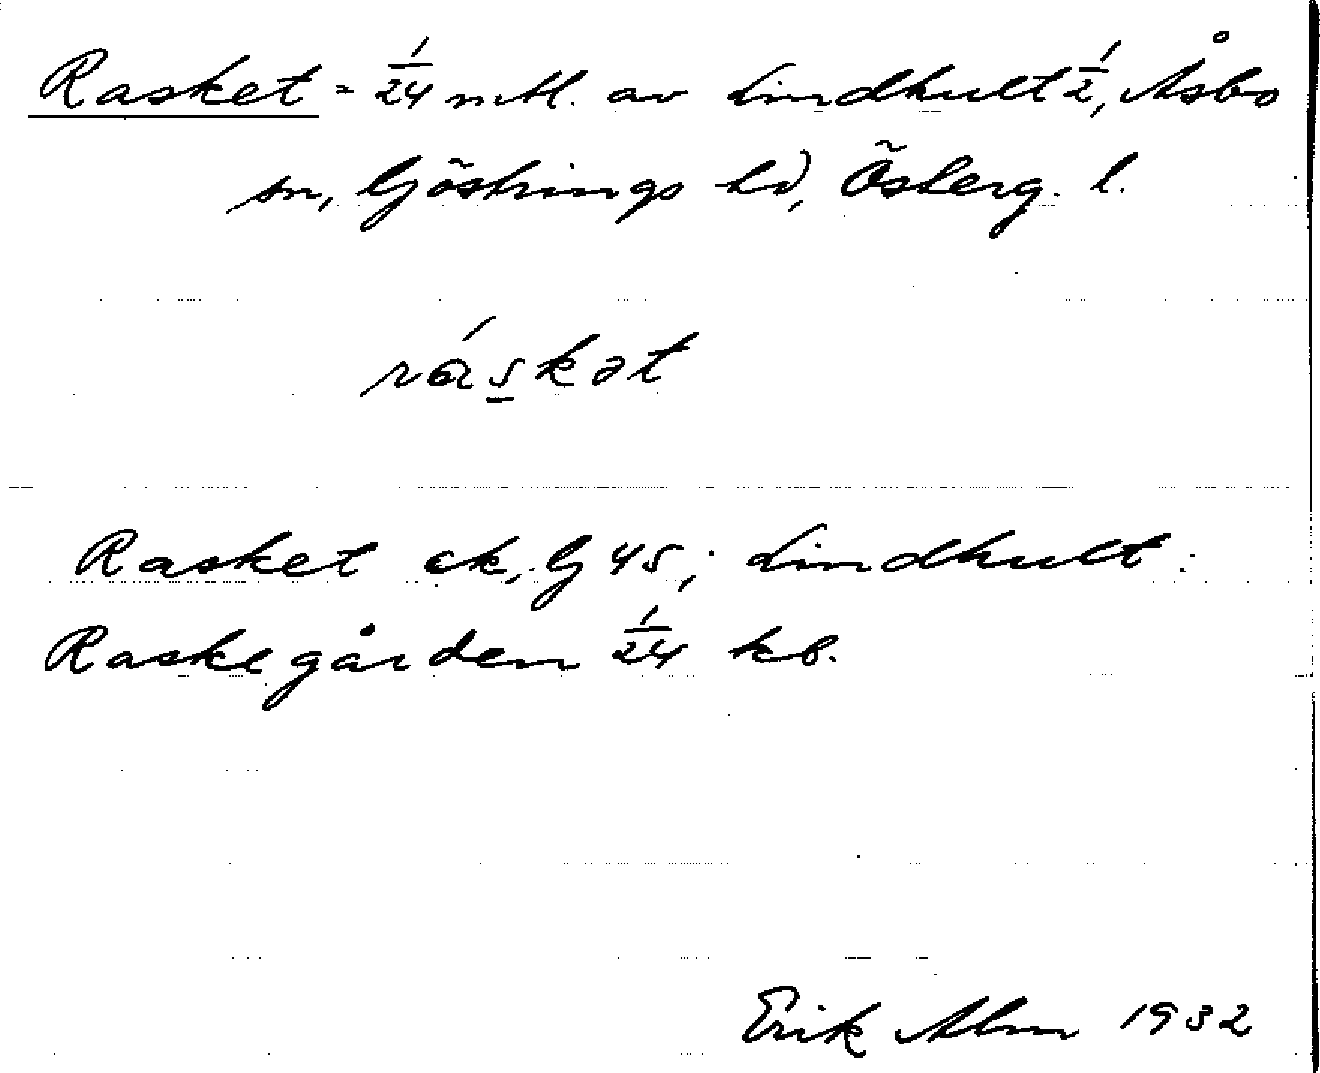 Rasket = 1/24 mtl. av Lindhult 1/2, Åsbo
sn, Göstrings hd, Österg. l.
ráskət
Rasket ek, G 45; Lindhult:
Raskegården 1/24 kb.
Erik Alm 1932